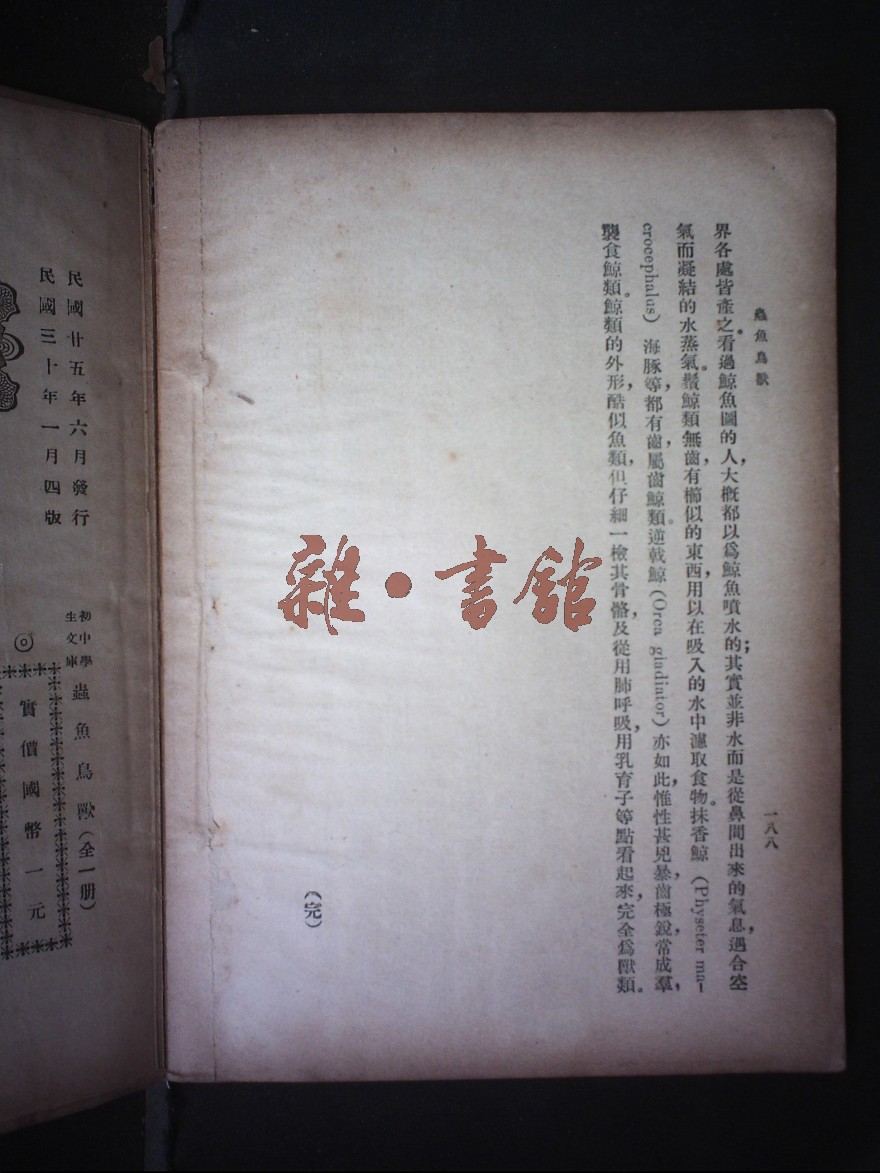 蟲魚鳥獸
一八八
界各處皆產之。看過鯨魚圖的人，大概都以爲鯨魚噴水的；其實並非水而是從鼻間出來的氣息，遇合空
氣而凝結的水蒸氣。鬚鯨類無齒，有櫛似的東西，用以在吸入的水中濾取食物。抹香鯨（Physeter ma-
crocephalus）海豚等都有齒，屬齒鯨類。逆戟鯨（Orca gladiator）亦如此，惟性甚兇暴，齒極銳，常成羣，
襲食鯨類。鯨類的外形，酷似魚類，但仔細一檢其骨骼，及從用肺呼吸，用乳育子等點看起來，完全爲獸類。
（完）
雜·書館
民國廿五年六月發行
民國三十年一月四版
初中學
生文庫
蟲魚鳥獸（全一册）
◎
實價國幣一元